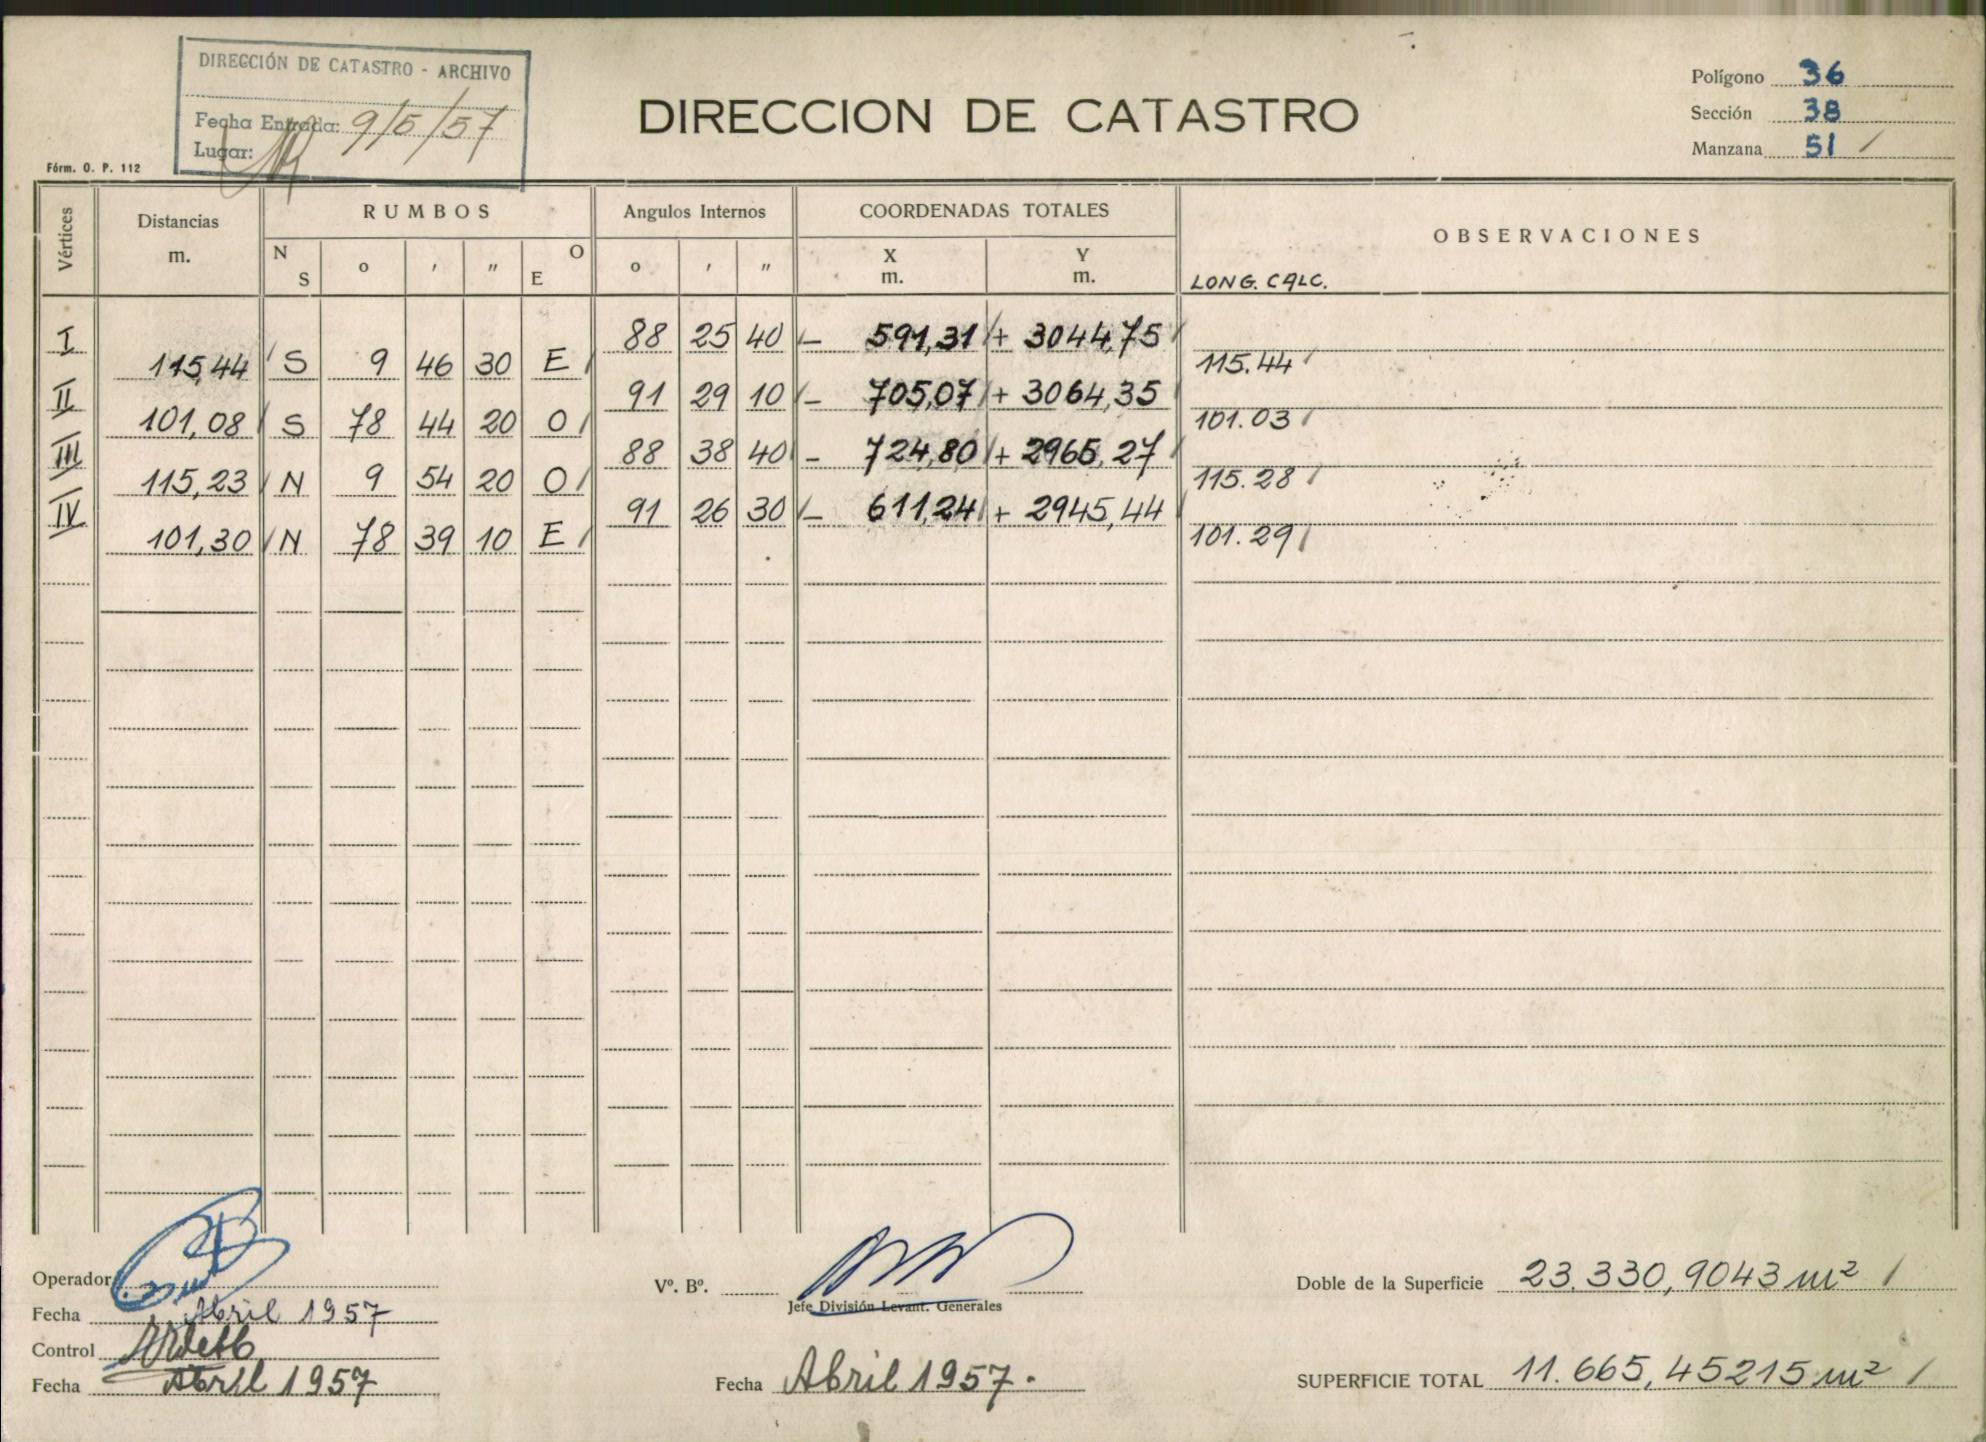 DIRECCIÓN DE CATASTRO - ARCHIVO
Fecha Entrada: 9/5/57
Lugar:
Fórm. O. P. 112
DIRECCION DE CATASTRO
Polígono 36
Sección 38
Manzana 51 /
Vértices Distancias m. RUMBOS Angulos Internos COORDENADAS TOTALES OBSERVACIONES
N S o ′ ″ O E o ′ ″ X m. Y m. LONG. CALC.
I 88 25 40 / − 591,31 / + 3044,75 /
115,44 / S 9 46 30 E / 115.44 /
II 91 29 10 / − 705,07 / + 3064,35
101,08 / S 78 44 20 O / 101.03 /
III 88 38 40 / − 724,80 / + 2965,27 /
115,23 / N 9 54 20 O / 115.28 /
IV 91 26 30 / − 611,24 / + 2945,44 /
101,30 / N 78 39 10 E / 101.29 /
Operador
Fecha Abril 1957
Control
Fecha Abril 1957
Vº. Bº.
Jefe División Levant. Generales
Fecha Abril 1957.
Doble de la Superficie 23.330,9043 m² /
SUPERFICIE TOTAL 11.665,45215 m² /